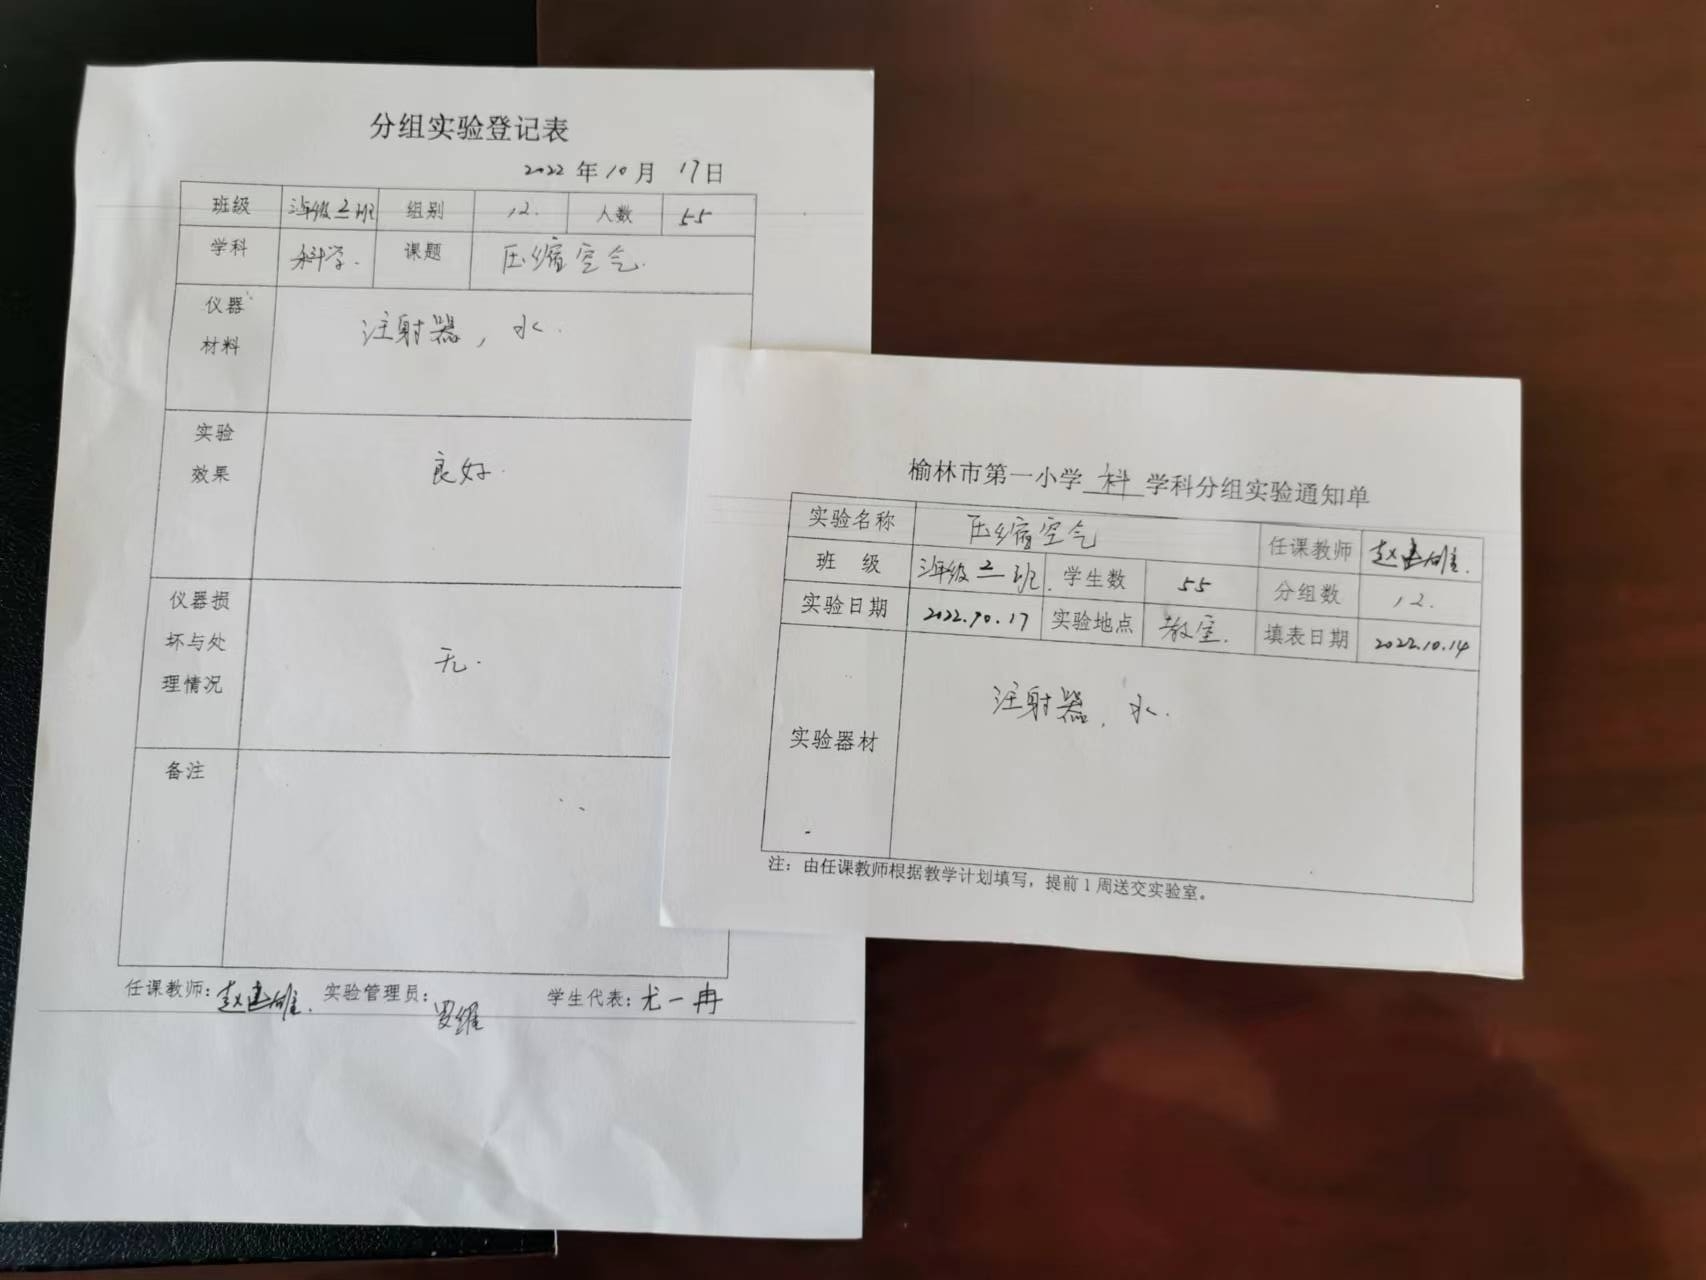 分组实验登记表
2022年10月17日
班级 三年级三班 组别 12. 人数 55
学科 科学. 课题 压缩空气.
仪器
材料
注射器，水.
实验
效果
良好.
仪器损
坏与处
理情况
无.
备注
任课教师：赵建雄. 实验管理员：罗维 学生代表：尤一冉
榆林市第一小学 科 学科分组实验通知单
实验名称 压缩空气 任课教师 赵建雄.
班 级 三年级三班. 学生数 55 分组数 12.
实验日期 2022.10.17 实验地点 教室. 填表日期 2022.10.14
实验器材 注射器，水.
注：由任课教师根据教学计划填写，提前1周送交实验室。